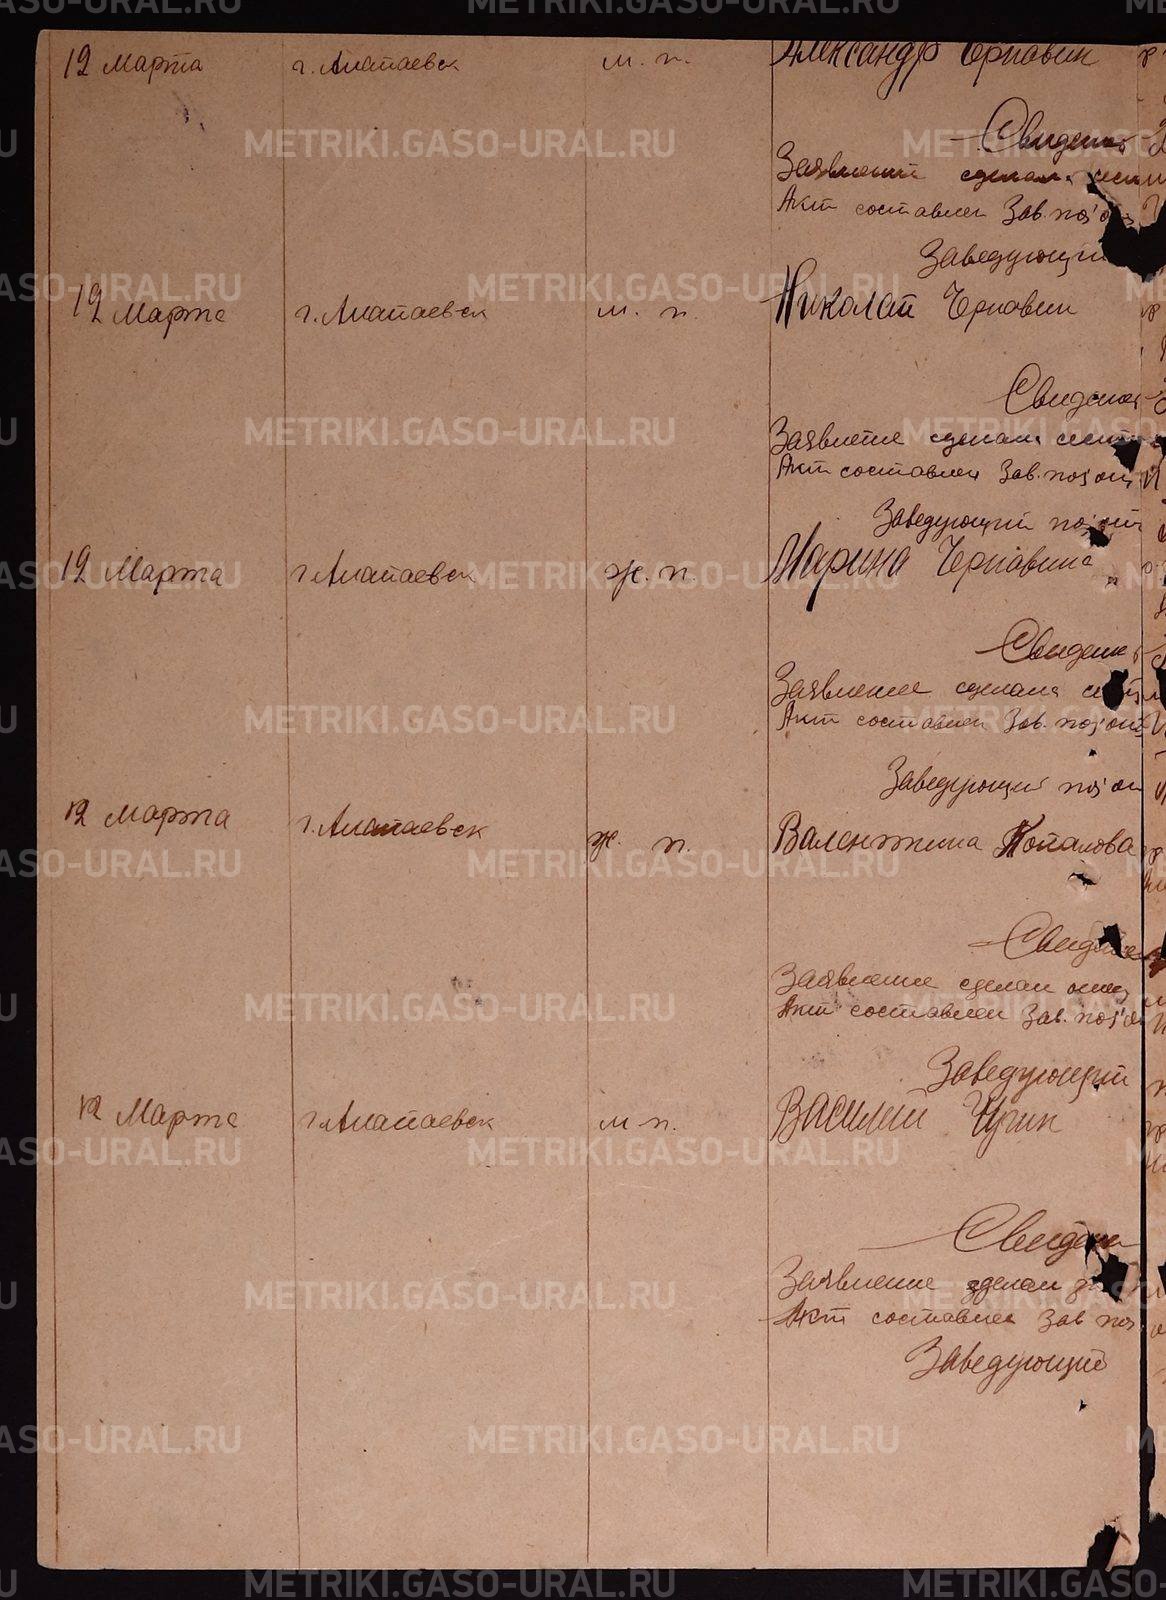 12 Марта г. Алапаевск м. п. Александр Чернавин
Свидетел
Заявление сделал сест
Акт составлен Зав. под'о
Заведующий
12 Марта г. Алапаевск м. п. Николай Чернавин
Свидетел
Заявление сделала сест
Акт составлен Зав. под'от
Заведующий под'от
12 Марта г. Алапаевск ж. п. Марина Чернавина
Свидетел
Заявление сделала сест
Акт составлен Зав. под'от
Заведующий под'от
12 Марта г. Алапаевск ж. п. Валентина
Свидете
Заявление сделал отец
Акт составлен Зав. под'от
Заведующий
12 Марта г. Алапаевск м. п. Василий
Свидете
Заявление сделал
Акт составлен Зав под
Заведующий
METRIKI.GASO-URAL.RU